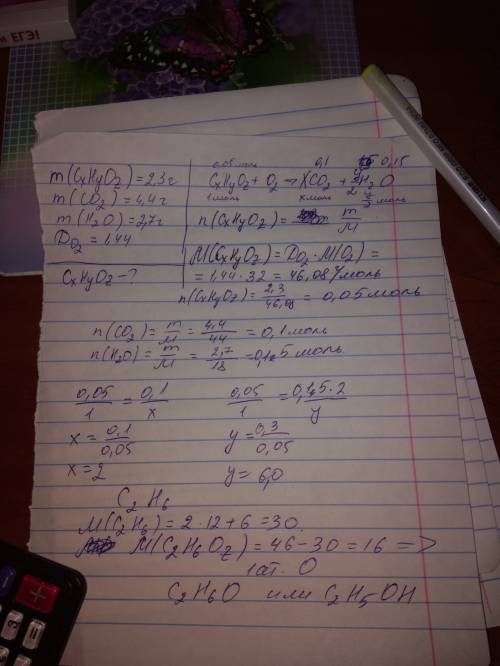 и ЕГЭ!
m(CxHyOz)=2,3г
m(CO2)=4,4г
m(H2O)=2,7г
DO2=1,44
CxHyOz-?
0,05 моль 0,1 0,15
CxHyOz + O2 → XCO2 + y/2 H2O
1 моль x моль y/2 моль
n(CxHyOz)= m/M
M(CxHyOz)=DO2·M(O2)=
=1,44·32=46,08 г/моль
n(CxHyOz)=2,3/46,08=0,05 моль
n(CO2)=m/M=4,4/44=0,1 моль
n(H2O)=m/M=2,7/18=0,15 моль.
0,05/1=0,1/x 0,05/1=0,15·2/y
x=0,1/0,05 y=0,3/0,05
x=2 y=6,0
C2H6
M(C2H6)=2·12+6=30.
M(C2H6Oz)=46-30=16 =>
1ат. O
C2H6O или C2H5OH
+
3
=